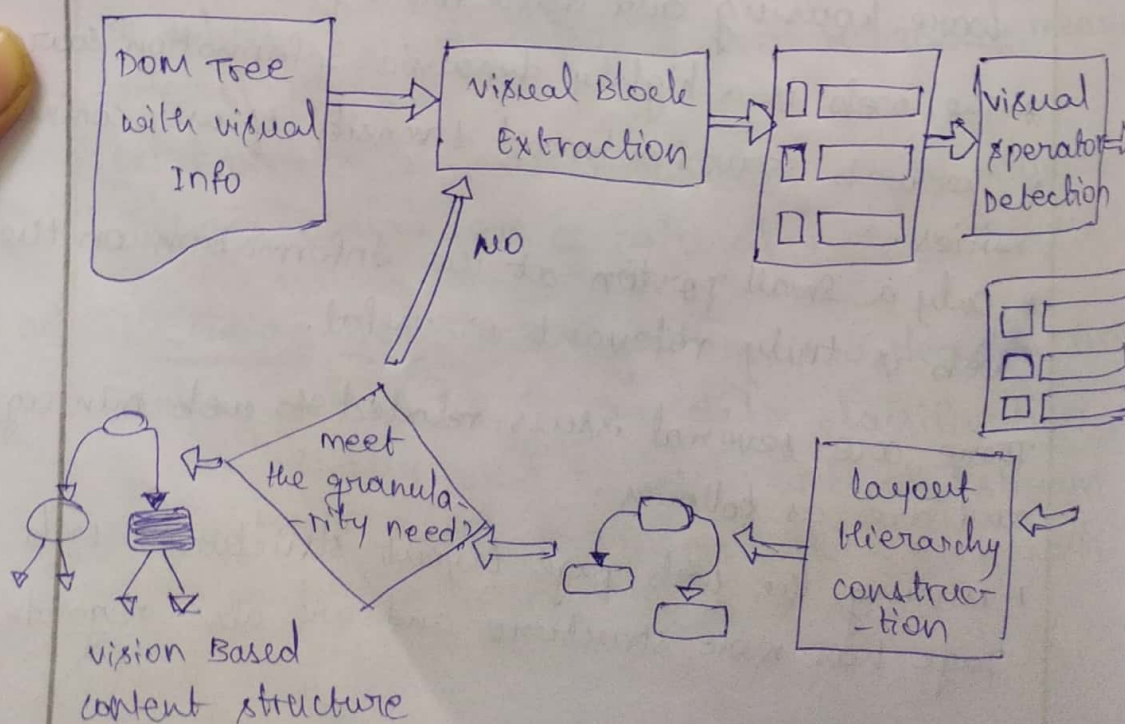 DOM Tree
with visual
Info
visual Block
Extraction
visual
sperator
Detection
NO
meet
the granula-
-rity need?
layout
Hierarchy
construc-
-tion
vision Based
content structure